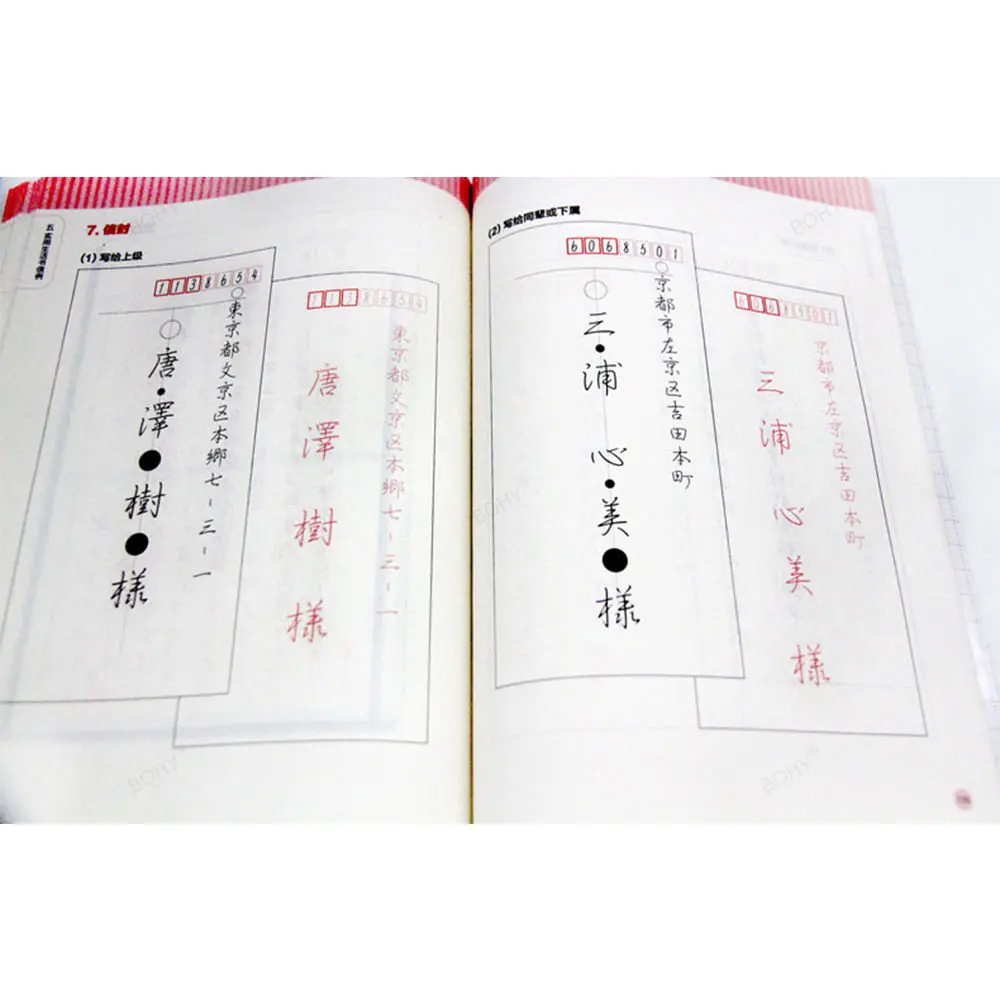 五 实用生活书信例
7. 信封
(1) 写给上级
1138654
東京都文京区本郷七-三-一
唐澤樹様
1138654
東京都文京区本郷七-三-一
唐澤樹様
(2) 写给同辈或下属
6068501
京都市左京区吉田本町
三浦 心美様
6068501
京都市左京区吉田本町
三浦 心美様
BOHY
BOHY
BOHY
BOHY
BOHY
BOHY